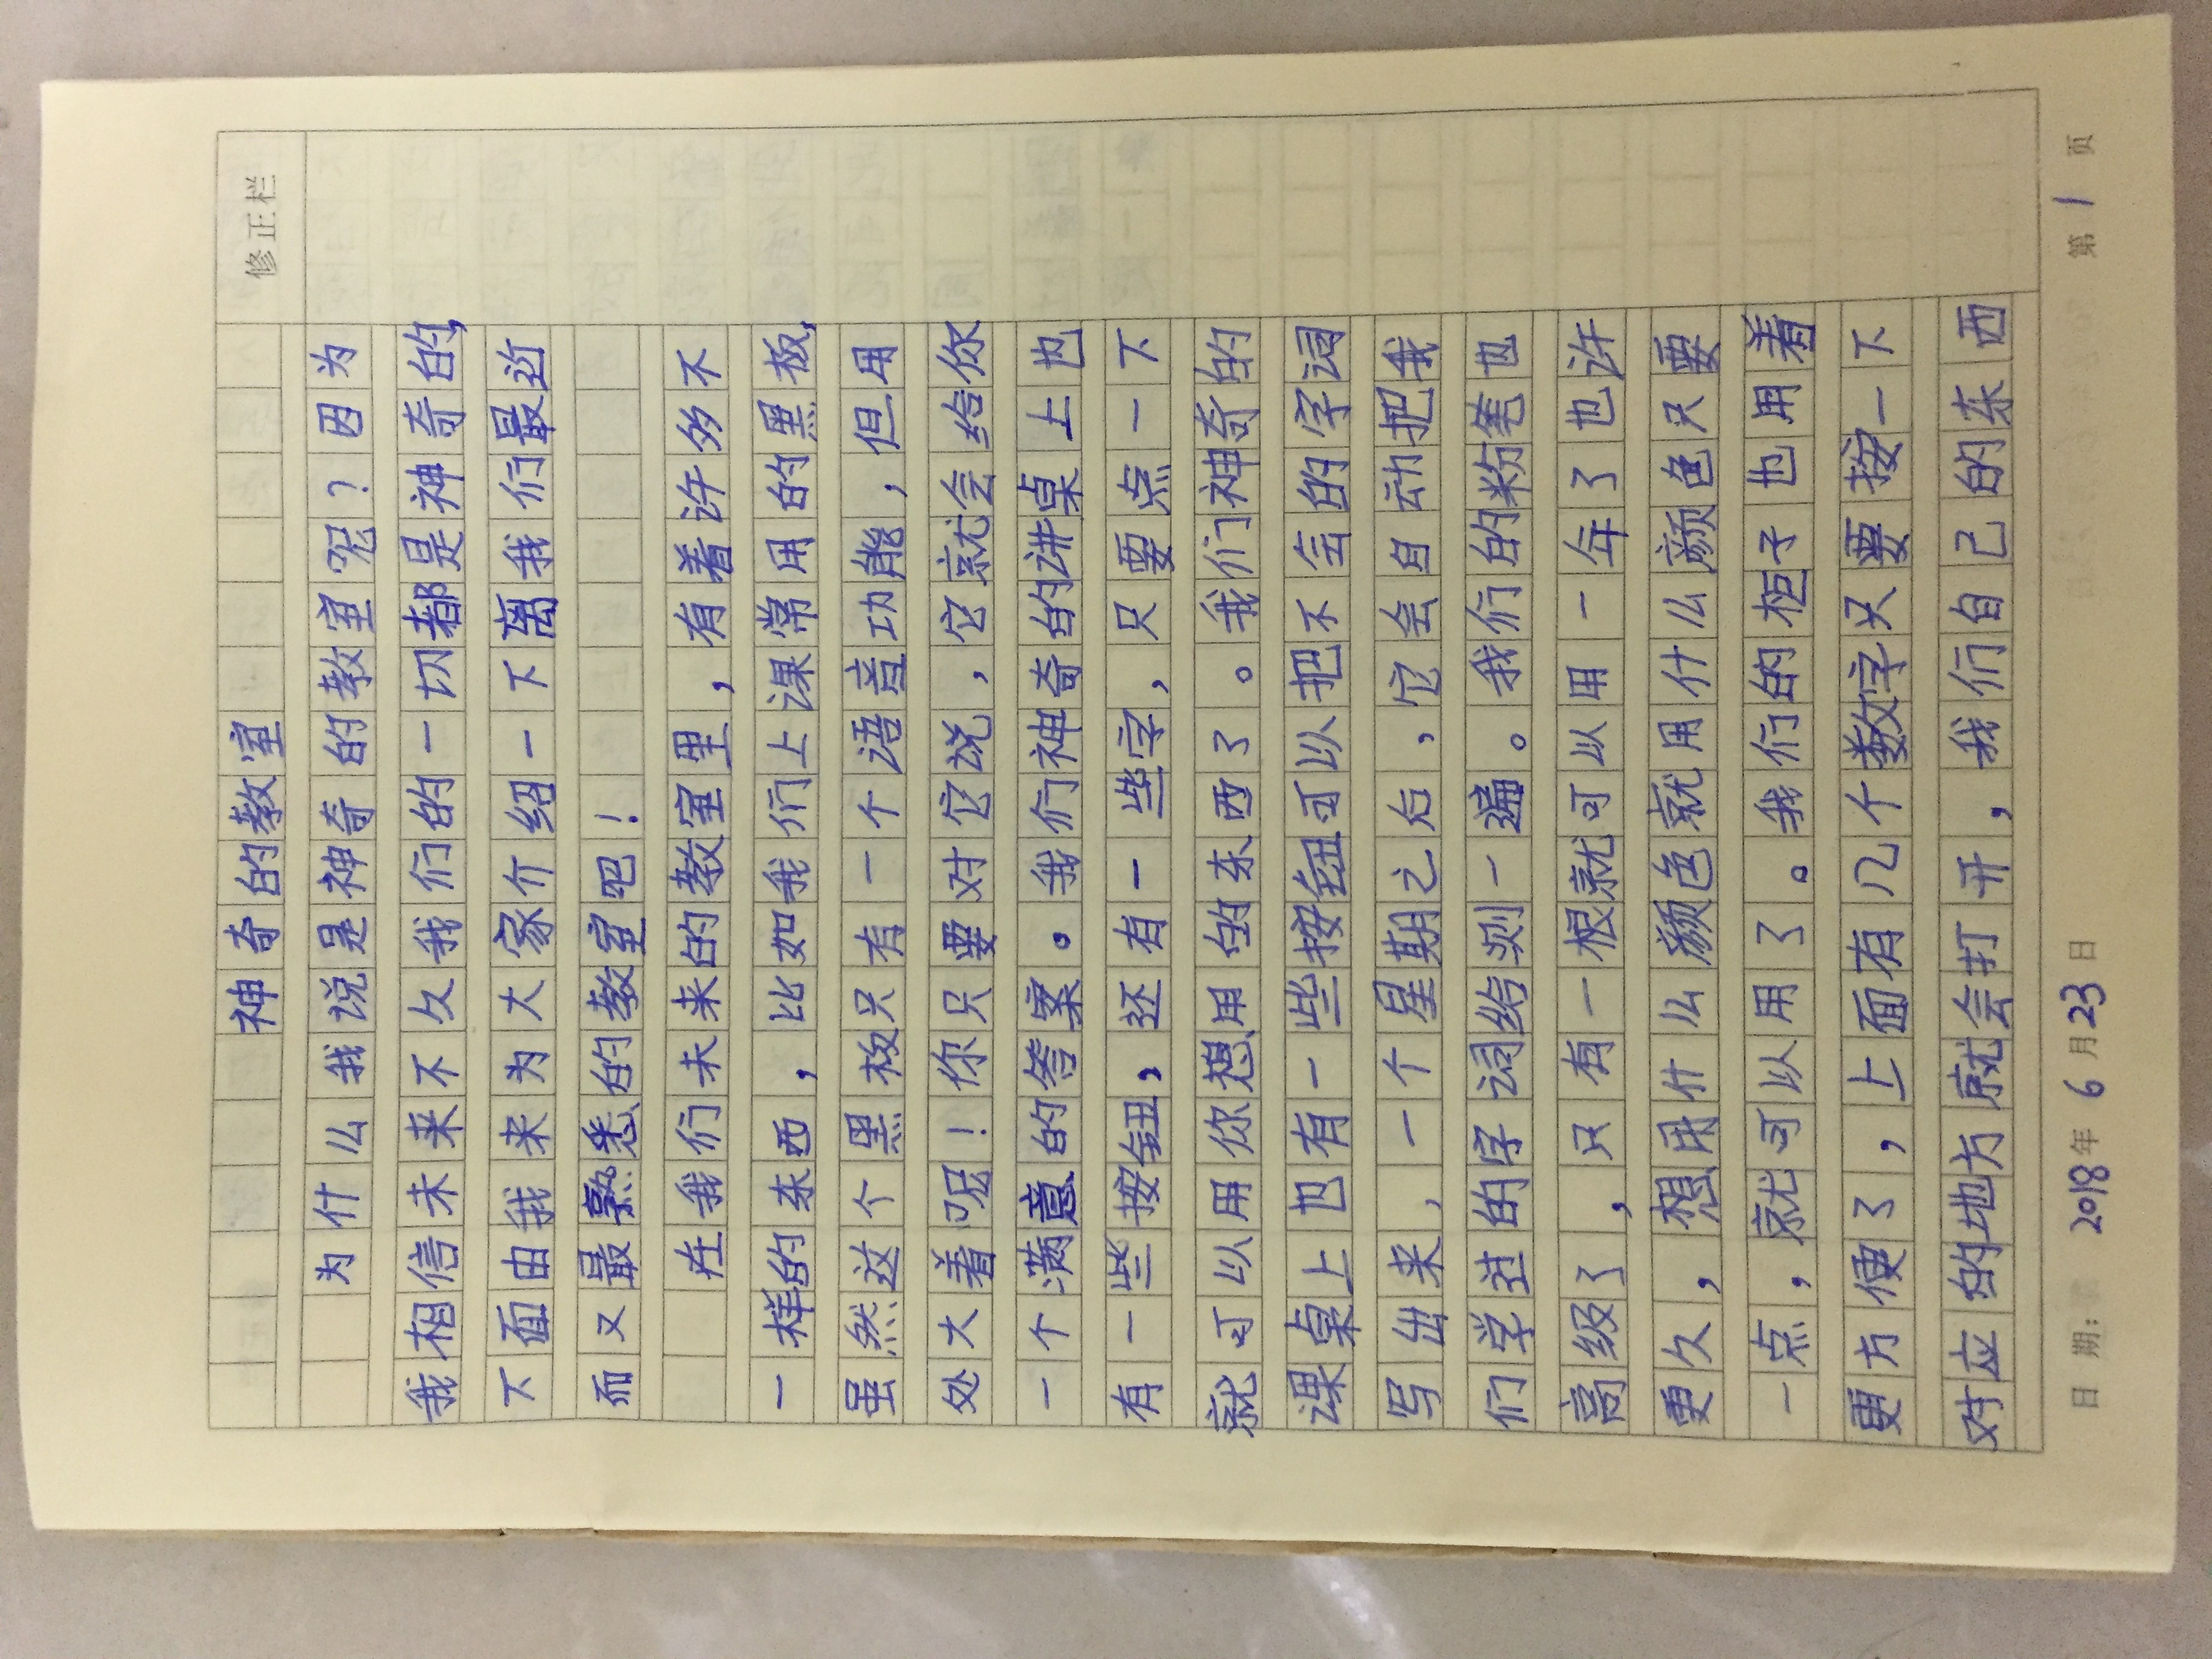 修正栏
神奇的教室
为什么我说是神奇的教室呢?因为
我相信未来不久我们的一切都是神奇的,
下面由我来为大家介绍一下离我们最近
而又最熟悉的教室吧!
在我们未来的教室里,有着许多不
一样的东西,比如我们上课常用的黑板,
虽然这个黑板只有一个语音功能,但用
处大着呢!你只要对它说,它就会给你
一个满意的答案。我们神奇的讲桌上也
有一些按钮,还有一些字,只要点一下
就可以用你想用的东西了。我们神奇的
课桌上也有一些按钮可以把不会的字词
写出来,一个星期之后,它会自动把我
们学过的字词给测一遍。我们的粉笔也
高级了,只有一根就可以用一年了也许
更久,想用什么颜色就用什么颜色只要
一点,就可以用了。我们的柜子也用着
更方便了,上面有几个数字只要按一下
对应的地方就会打开,我们自己的东西
日期: 2018年6月23日 第1页